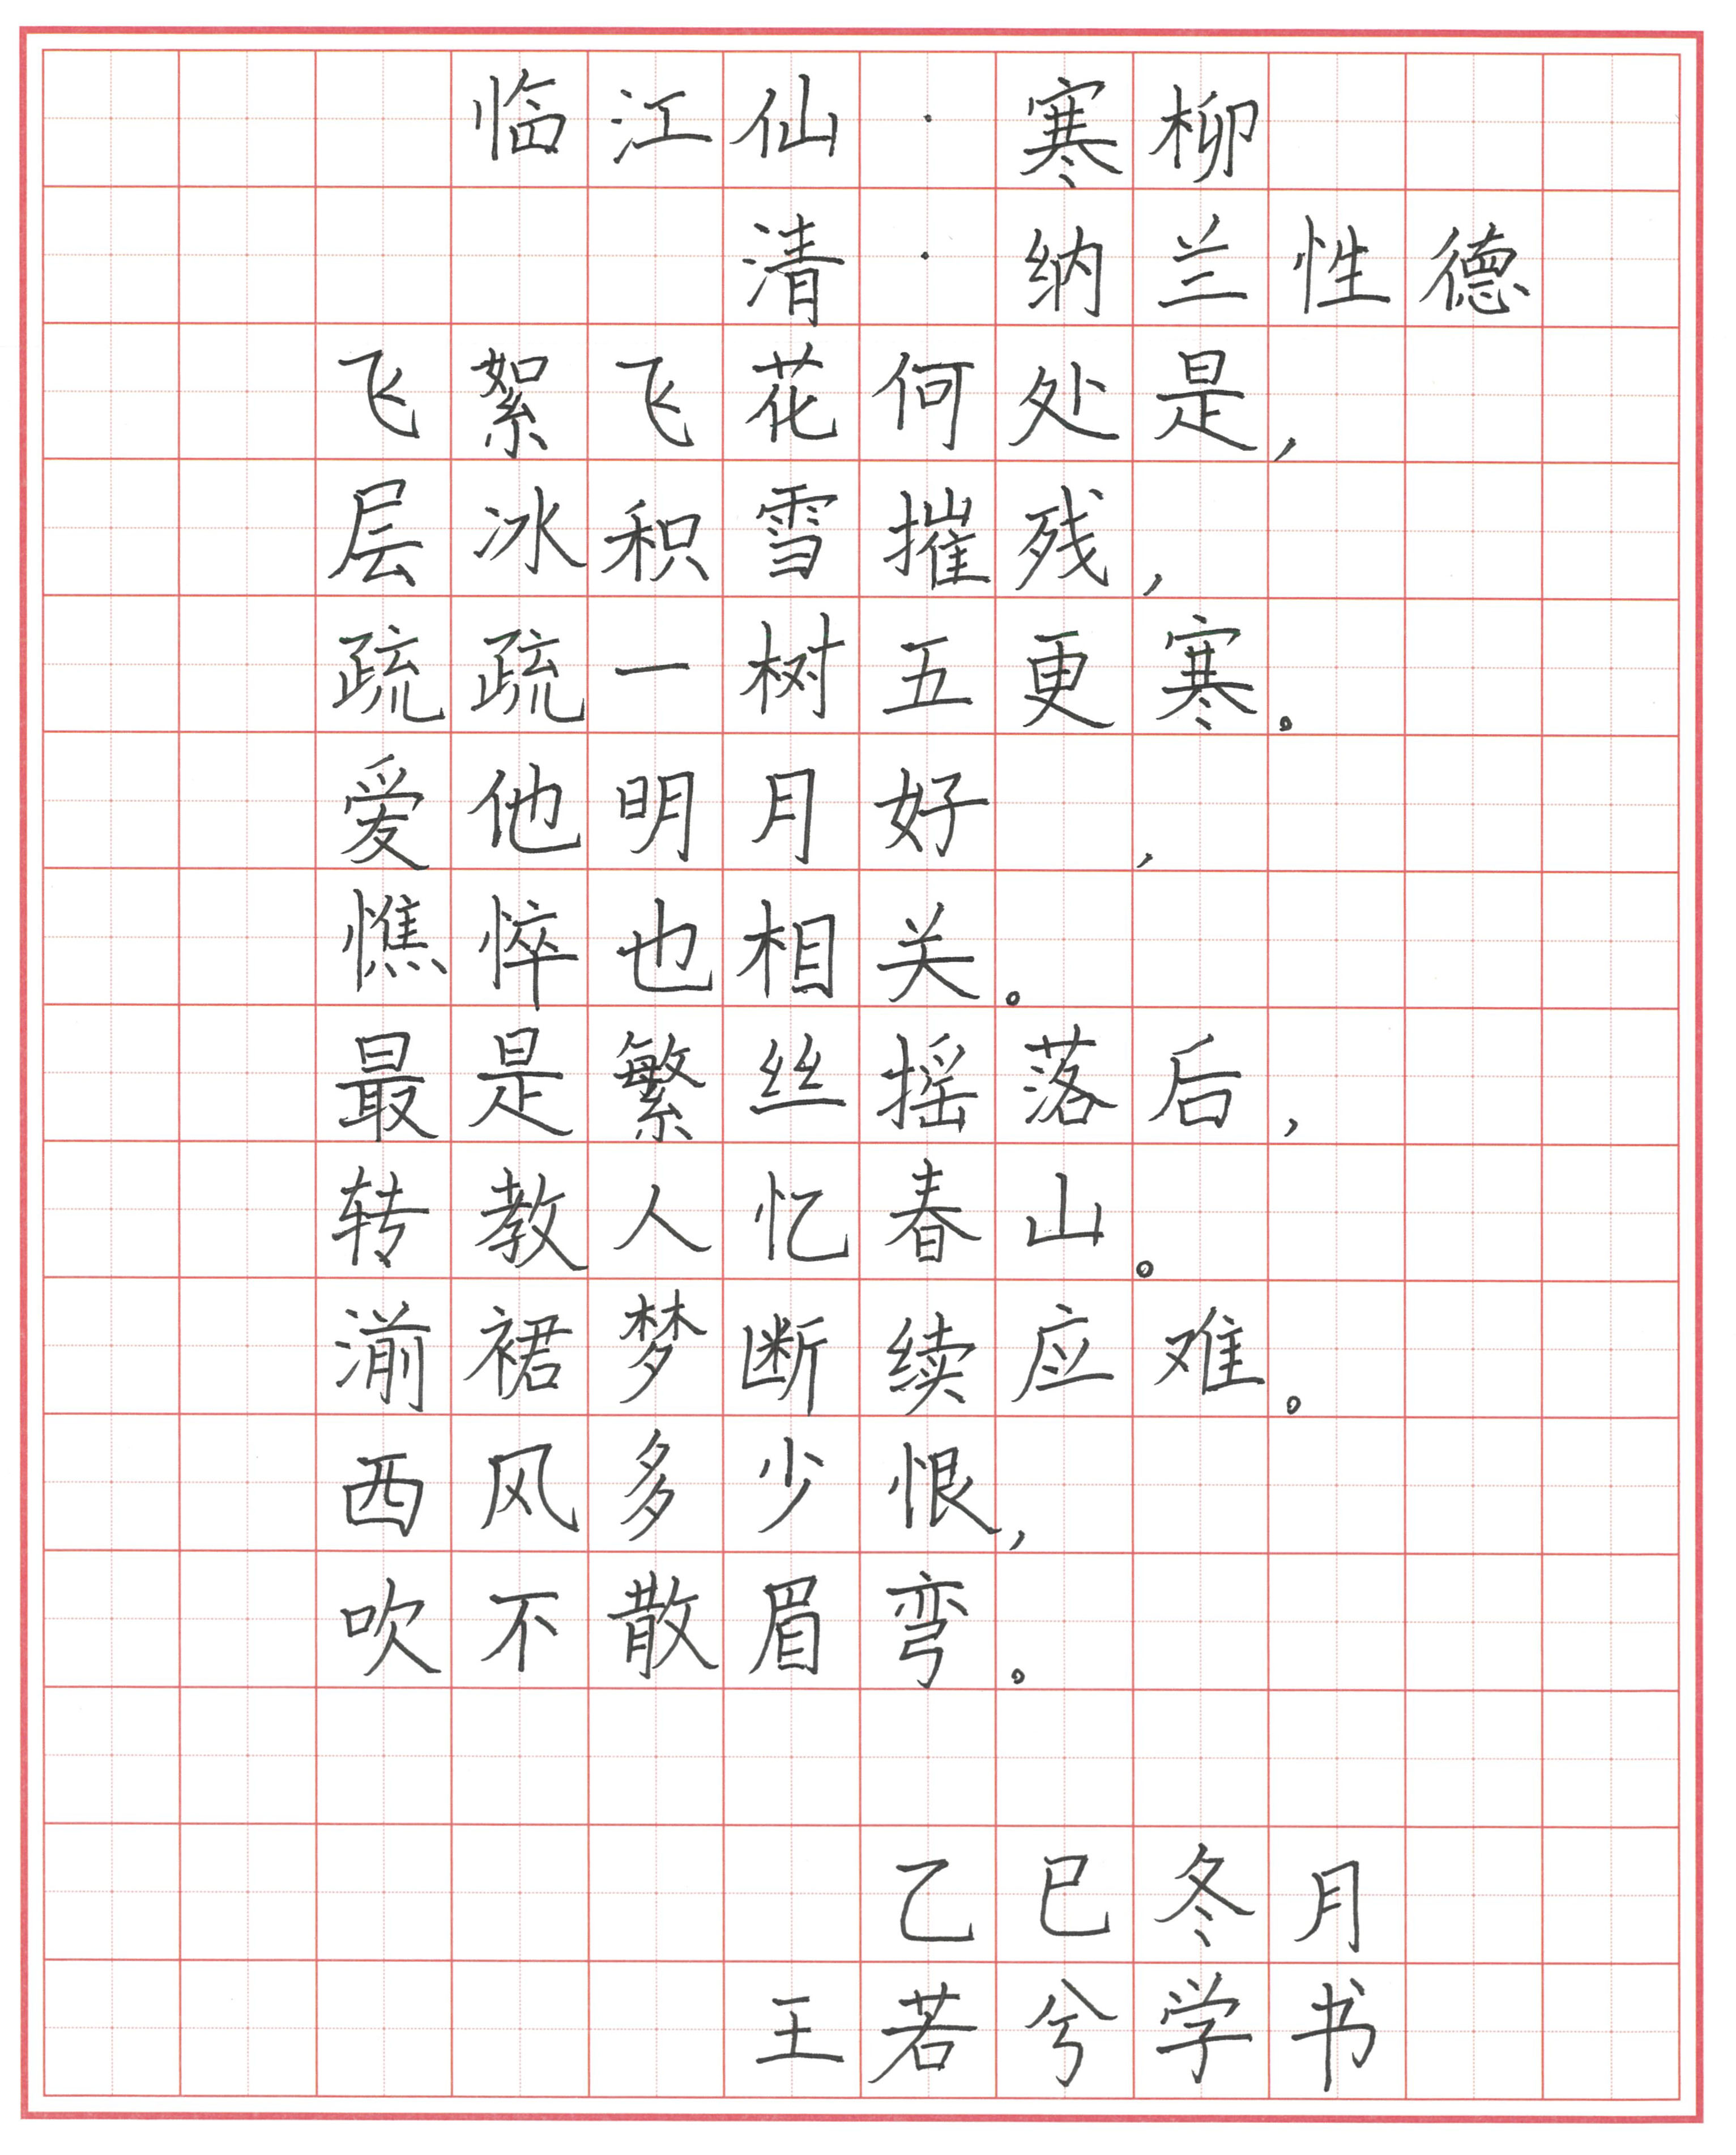 临江仙·寒柳
清·纳兰性德
飞絮飞花何处是,
层冰积雪摧残,
疏疏一树五更寒。
爱他明月好,
憔悴也相关。
最是繁丝摇落后,
转教人忆春山。
湔裙梦断续应难。
西风多少恨,
吹不散眉弯。
乙巳冬月
王若兮学书